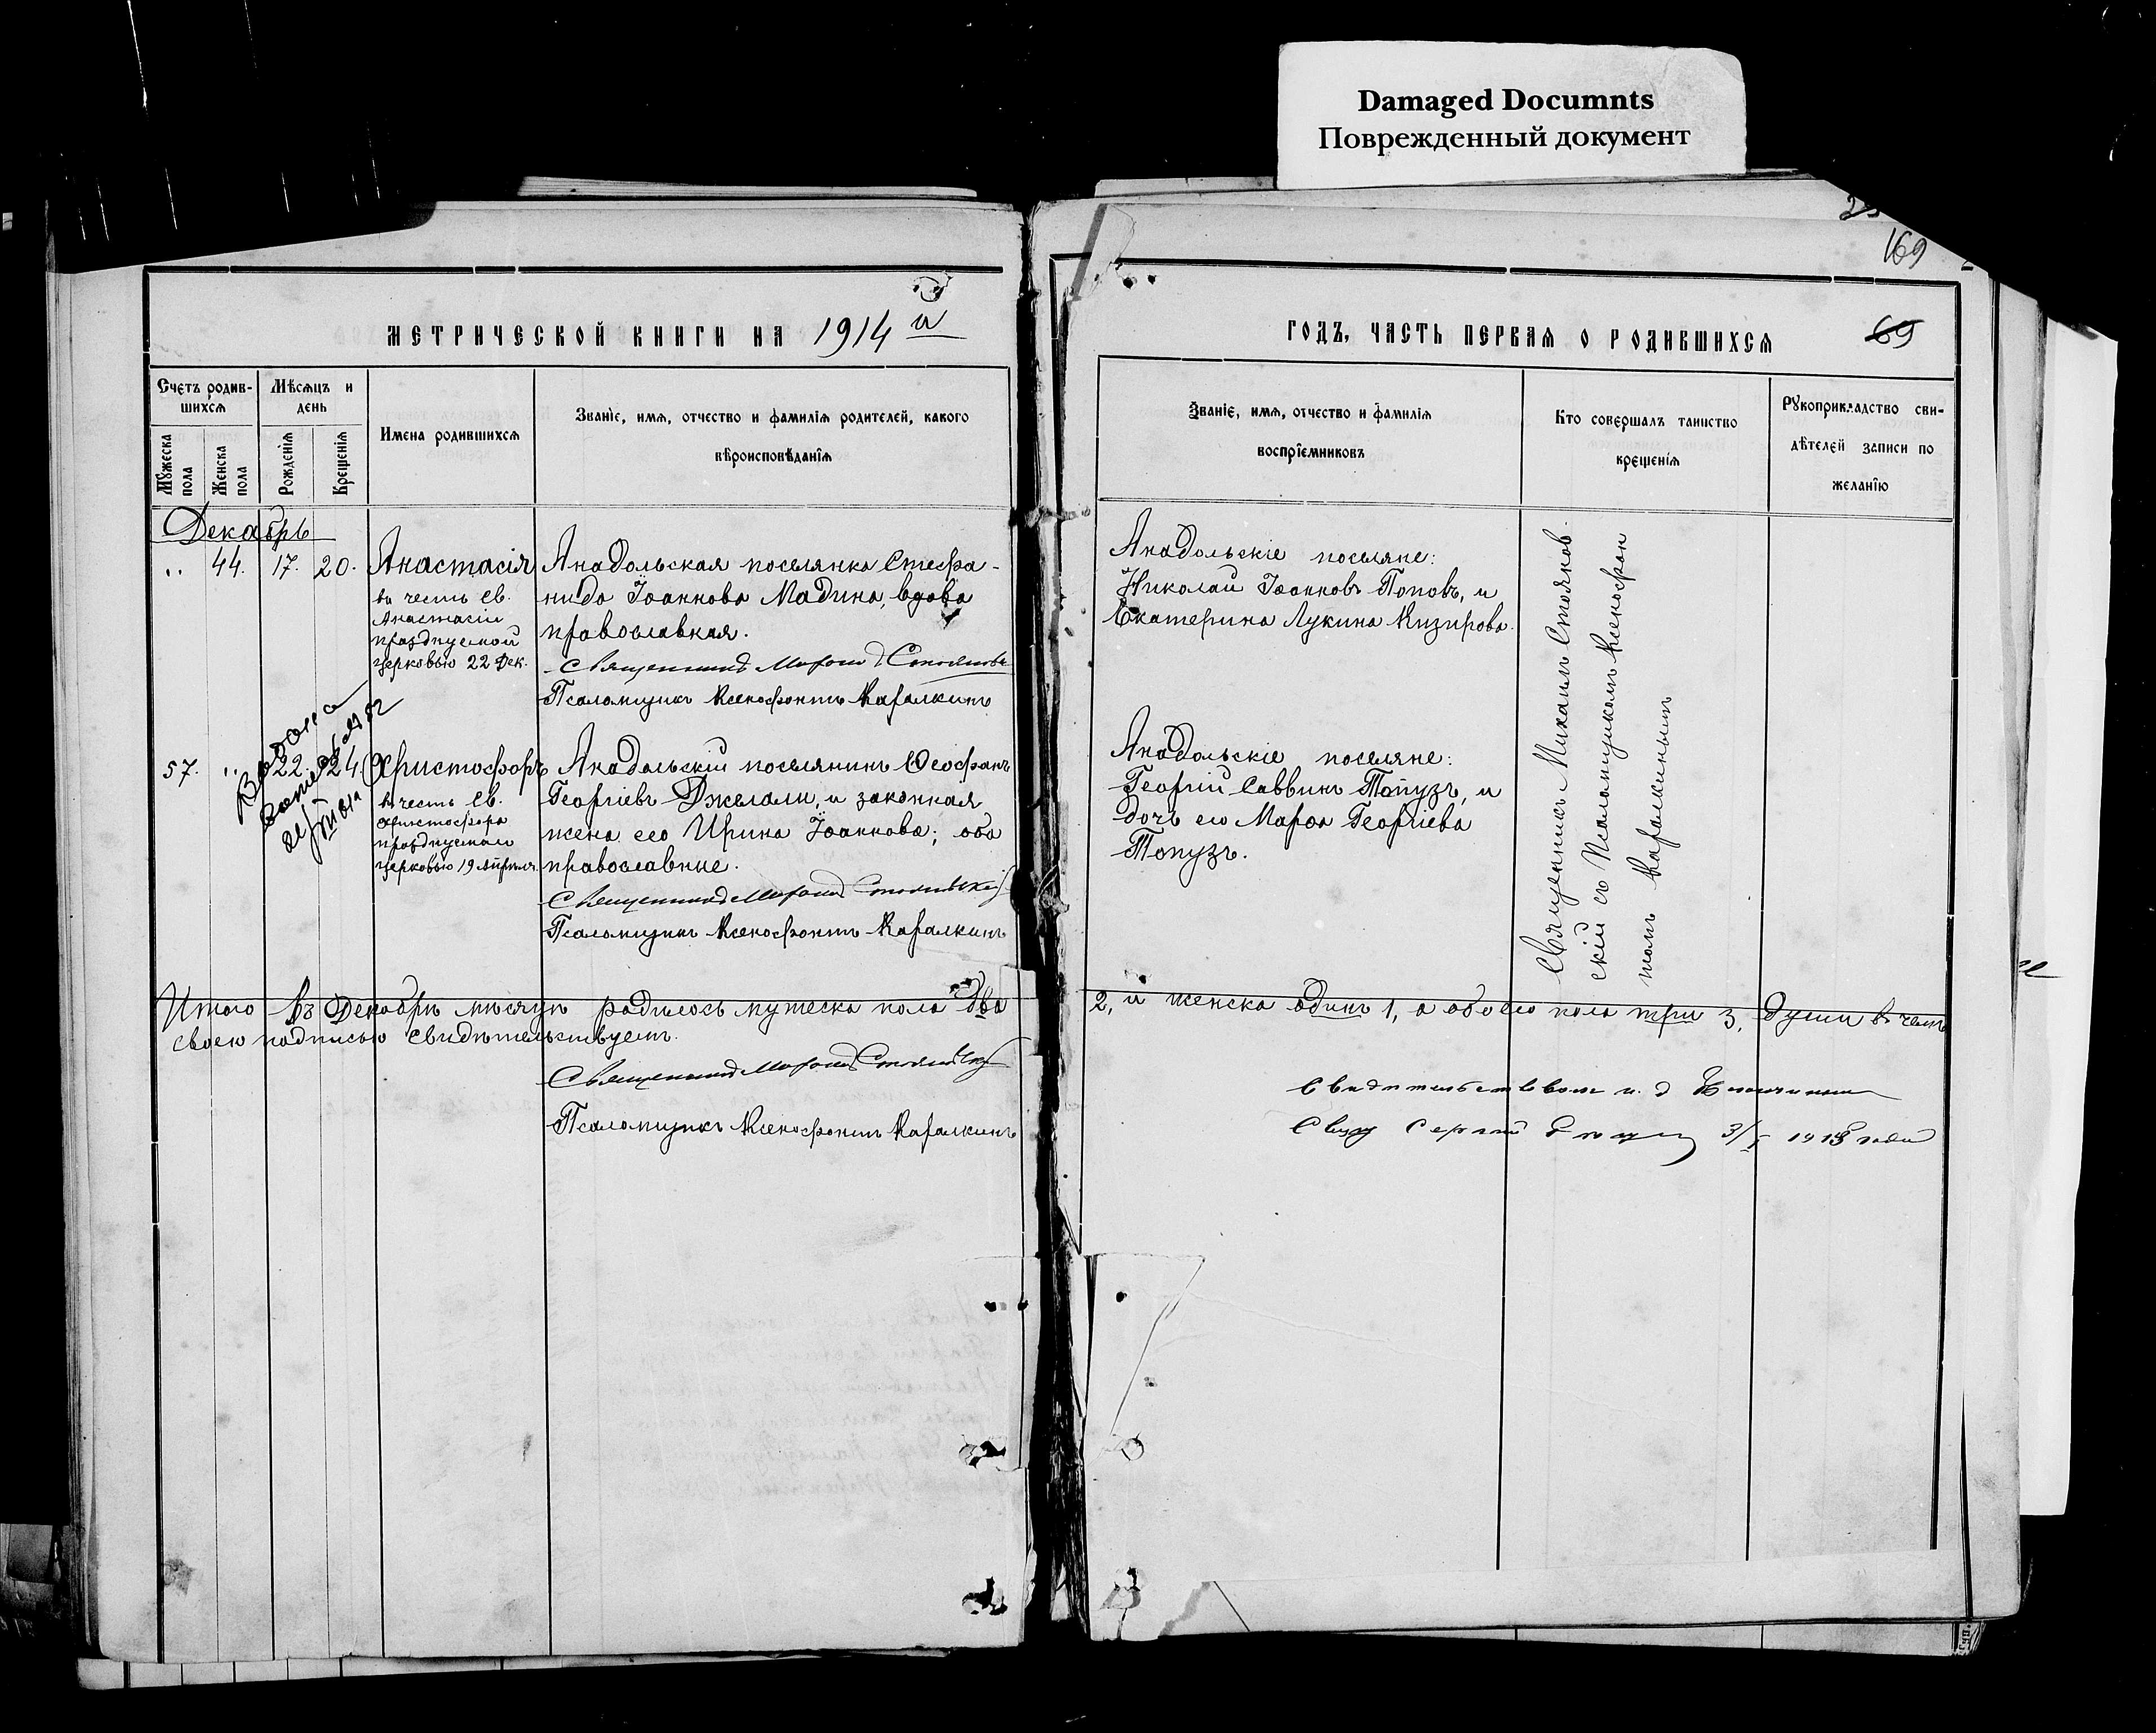 Damaged Documnts
Поврежденный документ
169
МЕТРИЧЕСКОЙ КНИГИ НА 1914 й
ГОДЪ, ЧАСТЬ ПЕРВАЯ О РОДИВШИХСЯ
69
Счетъ родив-
шихся
Мѣсяцъ и
день
Мужеска
пола
Женска
пола
Рожденія
Крещенія
Имена родившихся
Званіе, имя, отчество и фамилія родителей, какого
вѣроисповѣданія
Званіе, имя, отчество и фамилія
воспріемниковъ
Кто совершалъ таинство
крещенія
Рукоприкладство сви-
дѣтелей записи по
желанію
Декабрь
44. 17. 20.
Анастасія
въ честь св.
Анастасіи
празднуемой
церковью 22 Дек.
Анадольская поселянка Стефа-
нида Іоаннова Мадина, вдова
православная.
Священникъ
Псаломщикъ Ксенофонтъ Каралкинъ
Анадольскіе поселяне:
Николай Іоанновъ Поповъ, и
Екатерина Лукина Кизирова.
Священникъ Михаилъ Стоянов-
скій съ Псаломщикомъ Ксенофон-
томъ Каралкинымъ
57. 22. 24.
Христофоръ
въ честь св.
Христофора
празднуемаго
церковью 19 Апрѣля.
Анадольскій поселянинъ Ѳеофанъ
Георгіевъ Джелали, и законная
жена его Ирина Іоаннова; оба
православные.
Священникъ
Псаломщикъ Ксенофонтъ Каралкинъ
Анадольскіе поселяне:
Георгій Саввинъ Топузъ, и
дочь его Марѳа Георгіева
Топузъ.
Итого въ Декабрѣ мѣсяцѣ родилось мужеска пола два 2, и женска одинъ 1, а обоего пола три 3, души въ чемъ
своею подписью свидѣтельствуемъ.
Священникъ
Псаломщикъ Ксенофонтъ Каралкинъ
Свидѣтельствовалъ и. д. Благочиннаго
Сергій